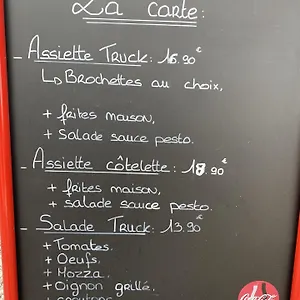 La carte:
- Assiette Truck: 16.90€
↳ Brochettes au choix,
+ frites maison,
+ Salade sauce pesto.
- Assiette côtelette: 18.90€
+ frites maison,
+ salade sauce pesto.
- Salade Truck: 13.90€
+ Tomates.
+ Oeufs.
+ Mozza.
+ Oignon grillé.
+ croutons